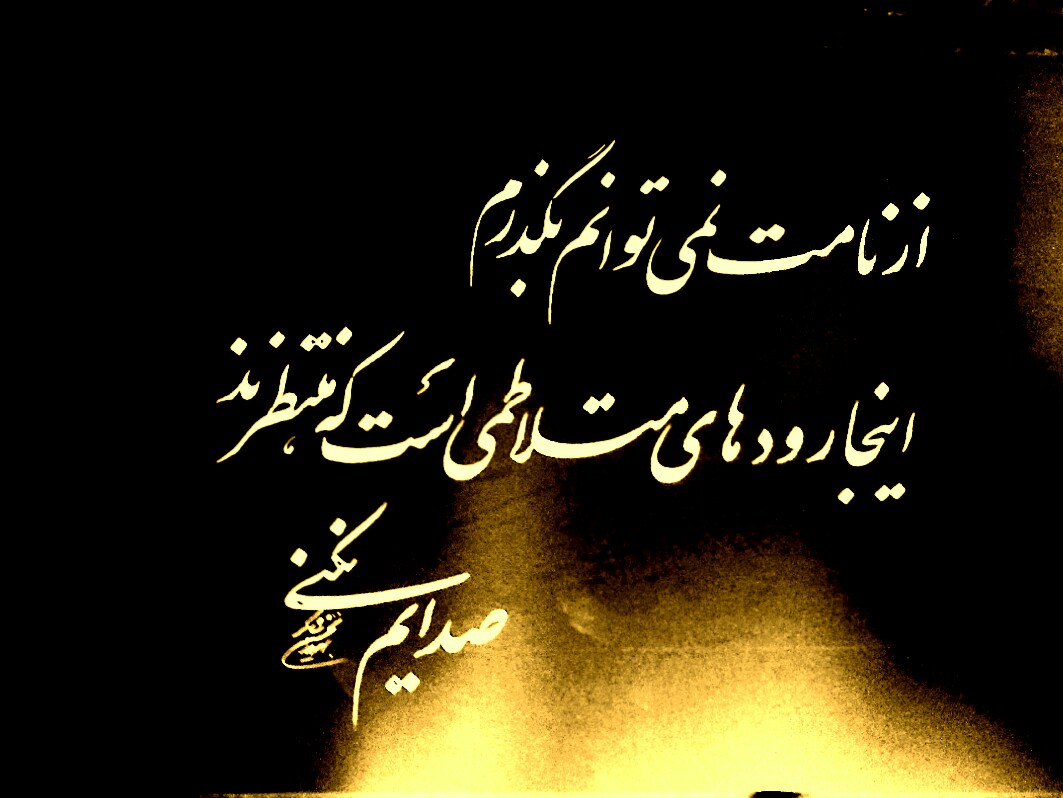 از نامت نمی توانم بگذرم
اینجا رودهای متلاطمی است که منتظرند
صدایم بکنی